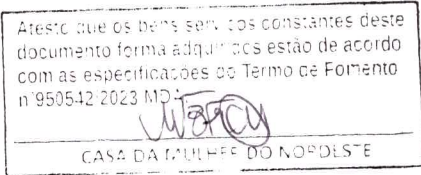 Atesto que os bens serviços constantes deste
documento forma adquiridos estão de acordo
com as especificações do Termo de Fomento
n°950542/2023 MDA
CASA DA MULHER DO NORDESTE